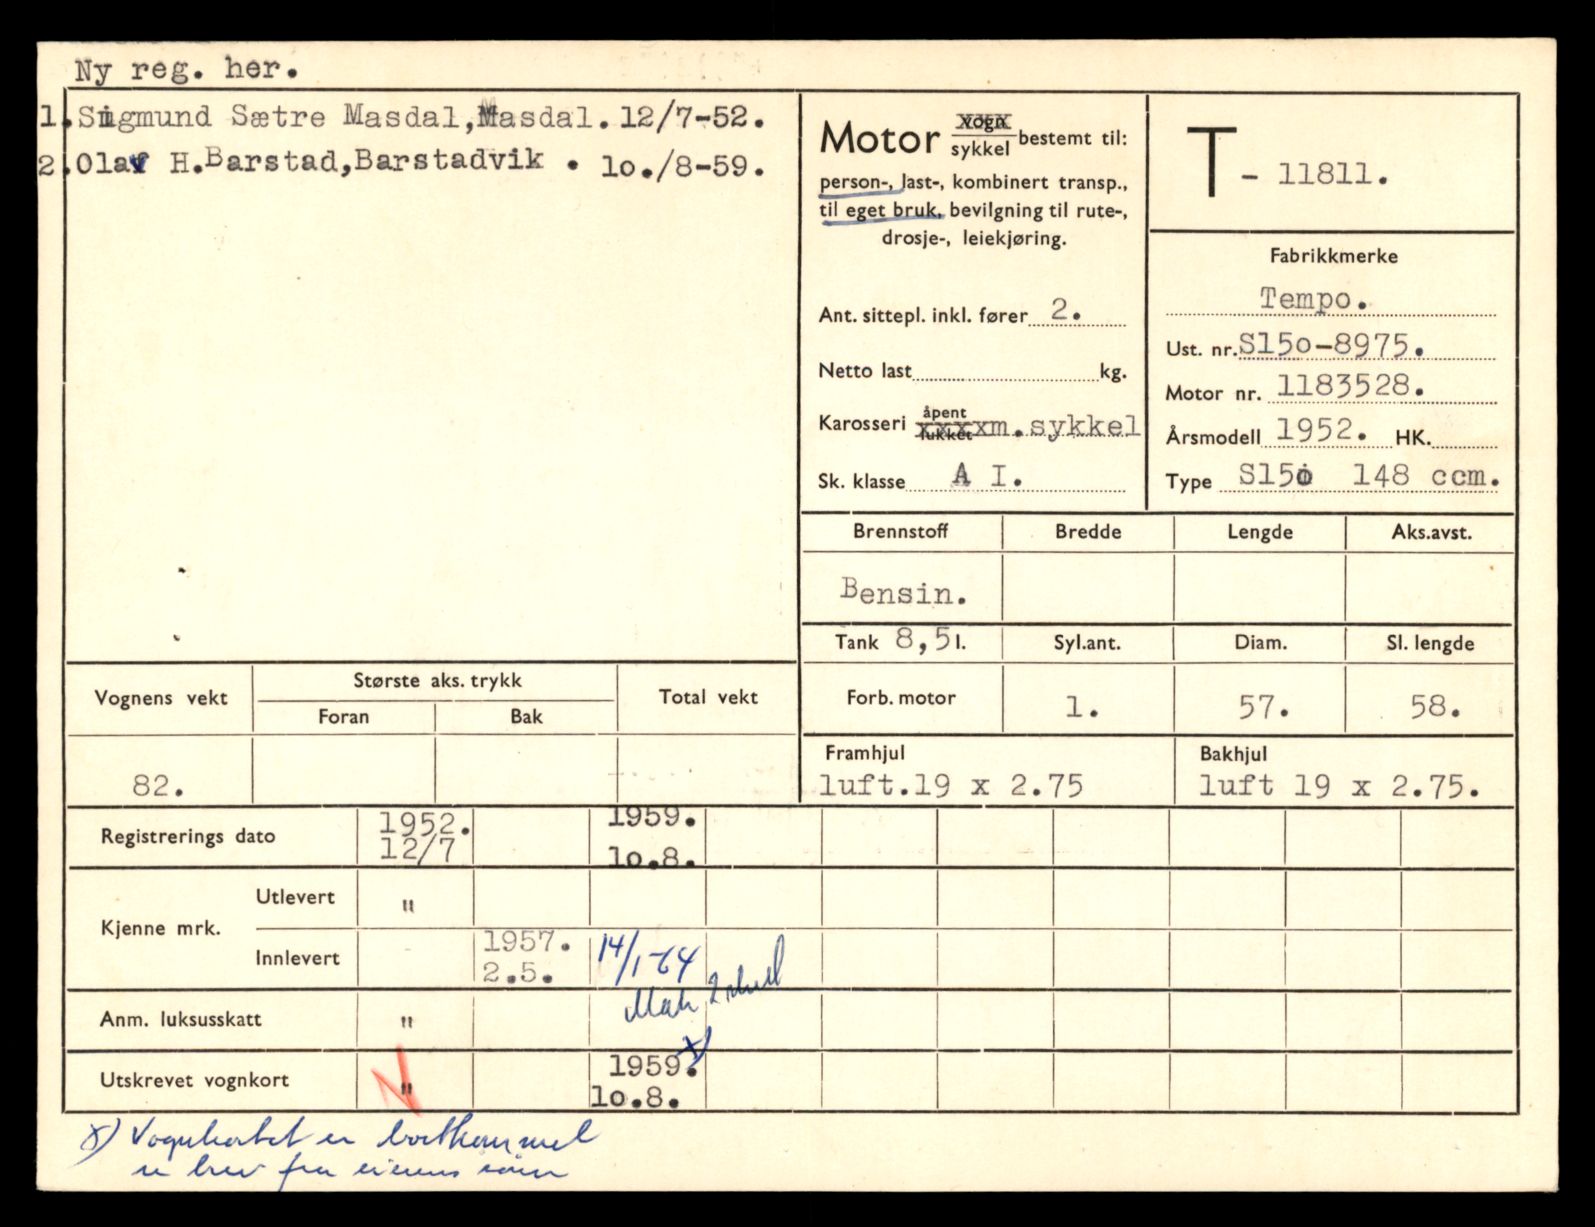 Ny reg. her.
1. Sigmund Sætre Masdal, Masdal. 12/7-52.
2. Olav H. Barstad, Barstadvik . lo./8-59.
Motor vogn sykkel bestemt til:
person-, last-, kombinert transp.,
til eget bruk, bevilgning til rute-,
drosje-, leiekjøring.
Ant. sittepl. inkl. fører 2.
Netto last kg.
Karosseri åpent lukket xxxxm.sykkel
Sk. klasse A I.
T - 11811.
Fabrikkmerke
Tempo.
Ust. nr. S15o-8975.
Motor nr. 1183528.
Årsmodell 1952. HK.
Type S15o 148 ccm.
Brennstoff Bredde Lengde Aks.avst.
Bensin.
Tank 8,5 l. Syl.ant. Diam. Sl. lengde
Forb. motor 1. 57. 58.
Framhjul Bakhjul
luft.19 x 2.75 luft 19 x 2.75.
Vognens vekt Største aks. trykk Total vekt
Foran Bak
82.
Registrerings dato 1952. 12/7 1959. lo.8.
Kjenne mrk. Utlevert "
Innlevert 1957. 2.5. 14/1-64
Anm. luksusskatt "
x)
Utskrevet vognkort " 1959. lo.8.
x) Vognkortet er bortkommet
brev fra eierens